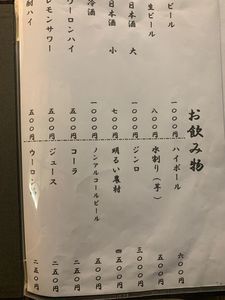 お飲み物
ビール 一〇〇〇円
生ビール 八〇〇円
日本酒 大 一〇〇〇円
日本酒 小 七〇〇円
冷酒 一〇〇〇円
ウーロンハイ 五〇〇円
レモンサワー 五〇〇円
酎ハイ 五〇〇円
ハイボール 六〇〇円
水割り（芋） 五〇〇円
ジンロ 三〇〇〇円
明るい農村 四五〇〇円
ノンアルコールビール 五〇〇円
コーラ 二五〇円
ジュース 二五〇円
ウーロン 二五〇円